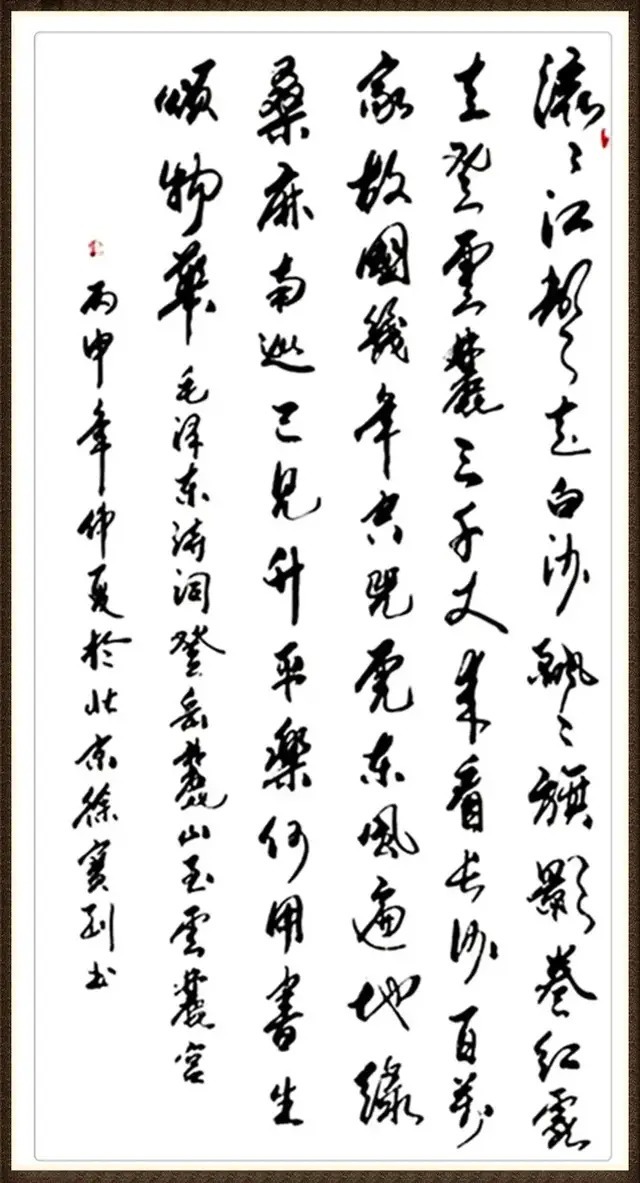 滚〻江声走白沙飘〻旗影卷红霞
直登雲麓三千丈来看长沙百萬
家故國幾年空兕虎东風遍地绿
桑麻南巡已见升平樂何用書生
颂物華 毛泽东诗词登岳麓山至雲麓宫
丙申年仲夏於北京徐寶书